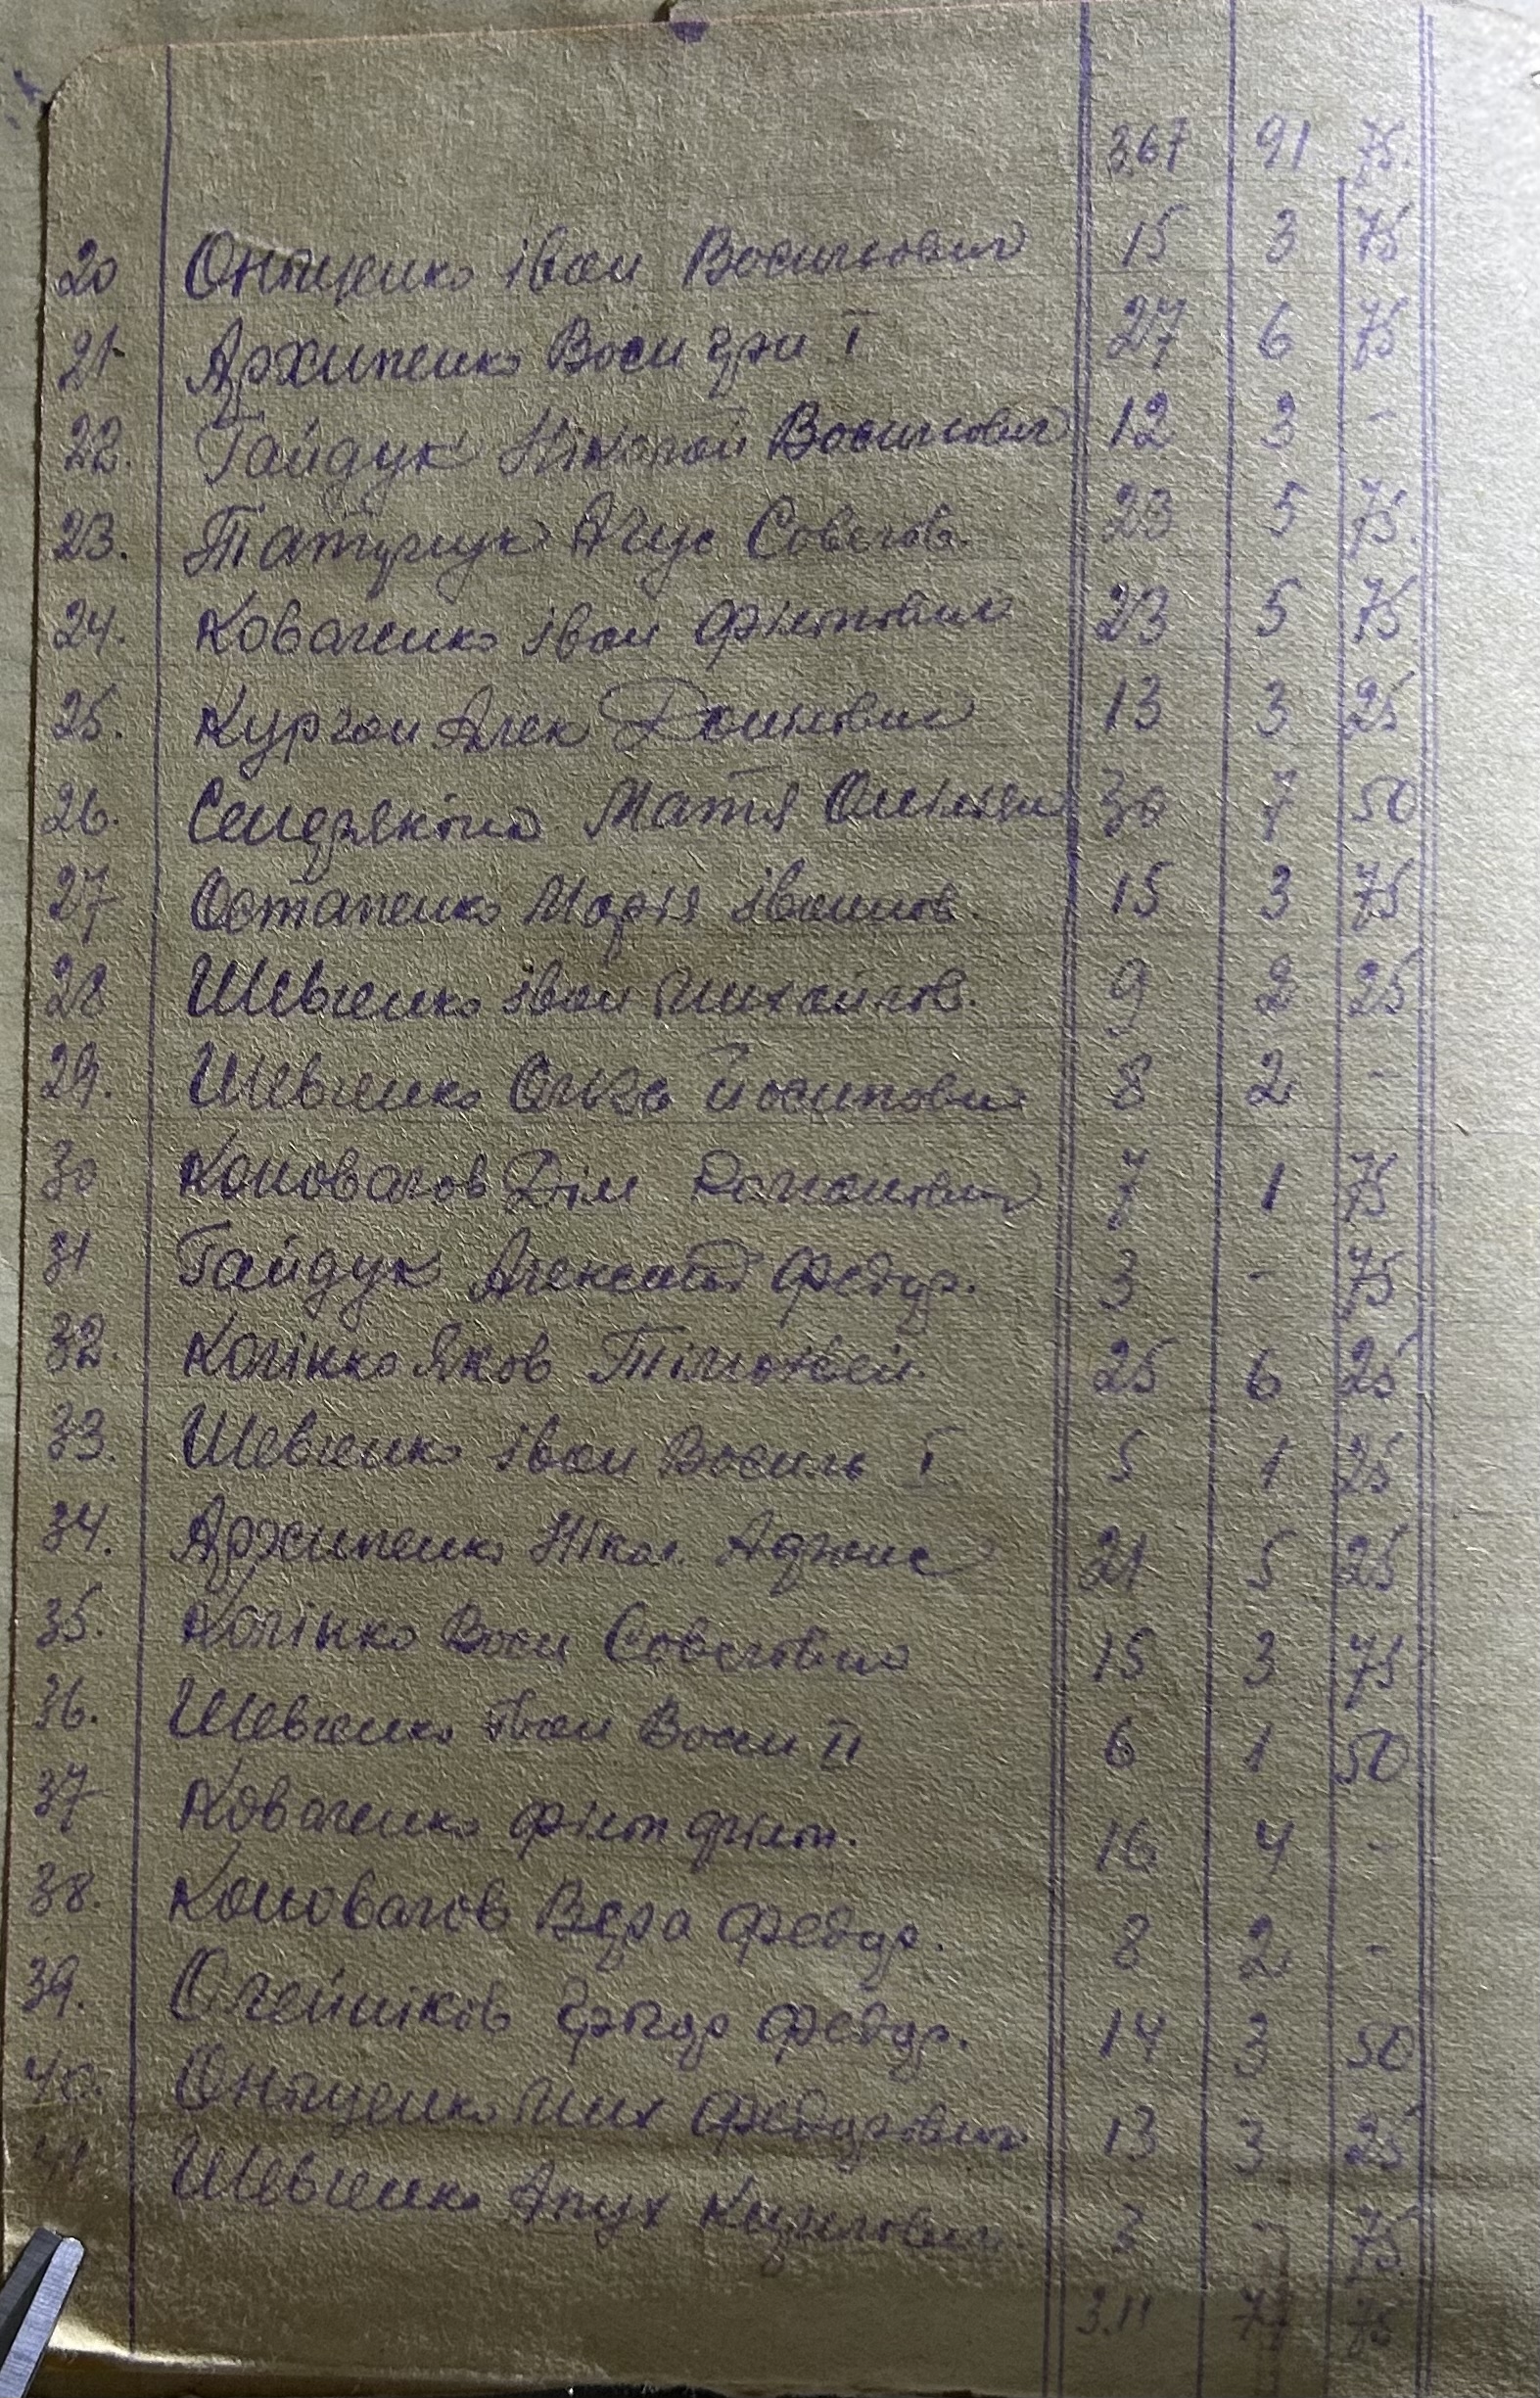 367 91 75.
20 Онищенко іван Васильович 15 3 75
21 Архипенко Васи гри I 27 6 75
22. Гайдук Ніколай Васильович 12 3 -
23. Татурчук Савелов. 23 5 75.
24. Коваленко іван Філіпович 23 5 75
25. Курган Алек 13 3 25
26. 30 7 50
27 Остапенко Марія іванов. 15 3 75
28 Шевченко іван Михайлов. 9 2 25
29. Шевченко Ольга Йосипович 8 2 -
30 Коновалов 7 1 75
31 Гайдук Александ Федур. 3 - 75
32. Колінко Яков Тімофей. 25 6 25
33. Шевченко іван Василь I 5 1 25
34. Архипенко Нікол. 21 5 25
35. Колінко Васи Савелович 15 3 75
36. Шевченко іван Васи II 6 1 50
37 Коваленко філіп філіп. 16 4 -
38. Коновалов Вера Федур. 8 2 -
39. Олейніков Федур. 14 3 50
40. Онищенко Мих Федурович 13 3 25
41 Шевченко Кирилович 3 - 75
3.11 77 75